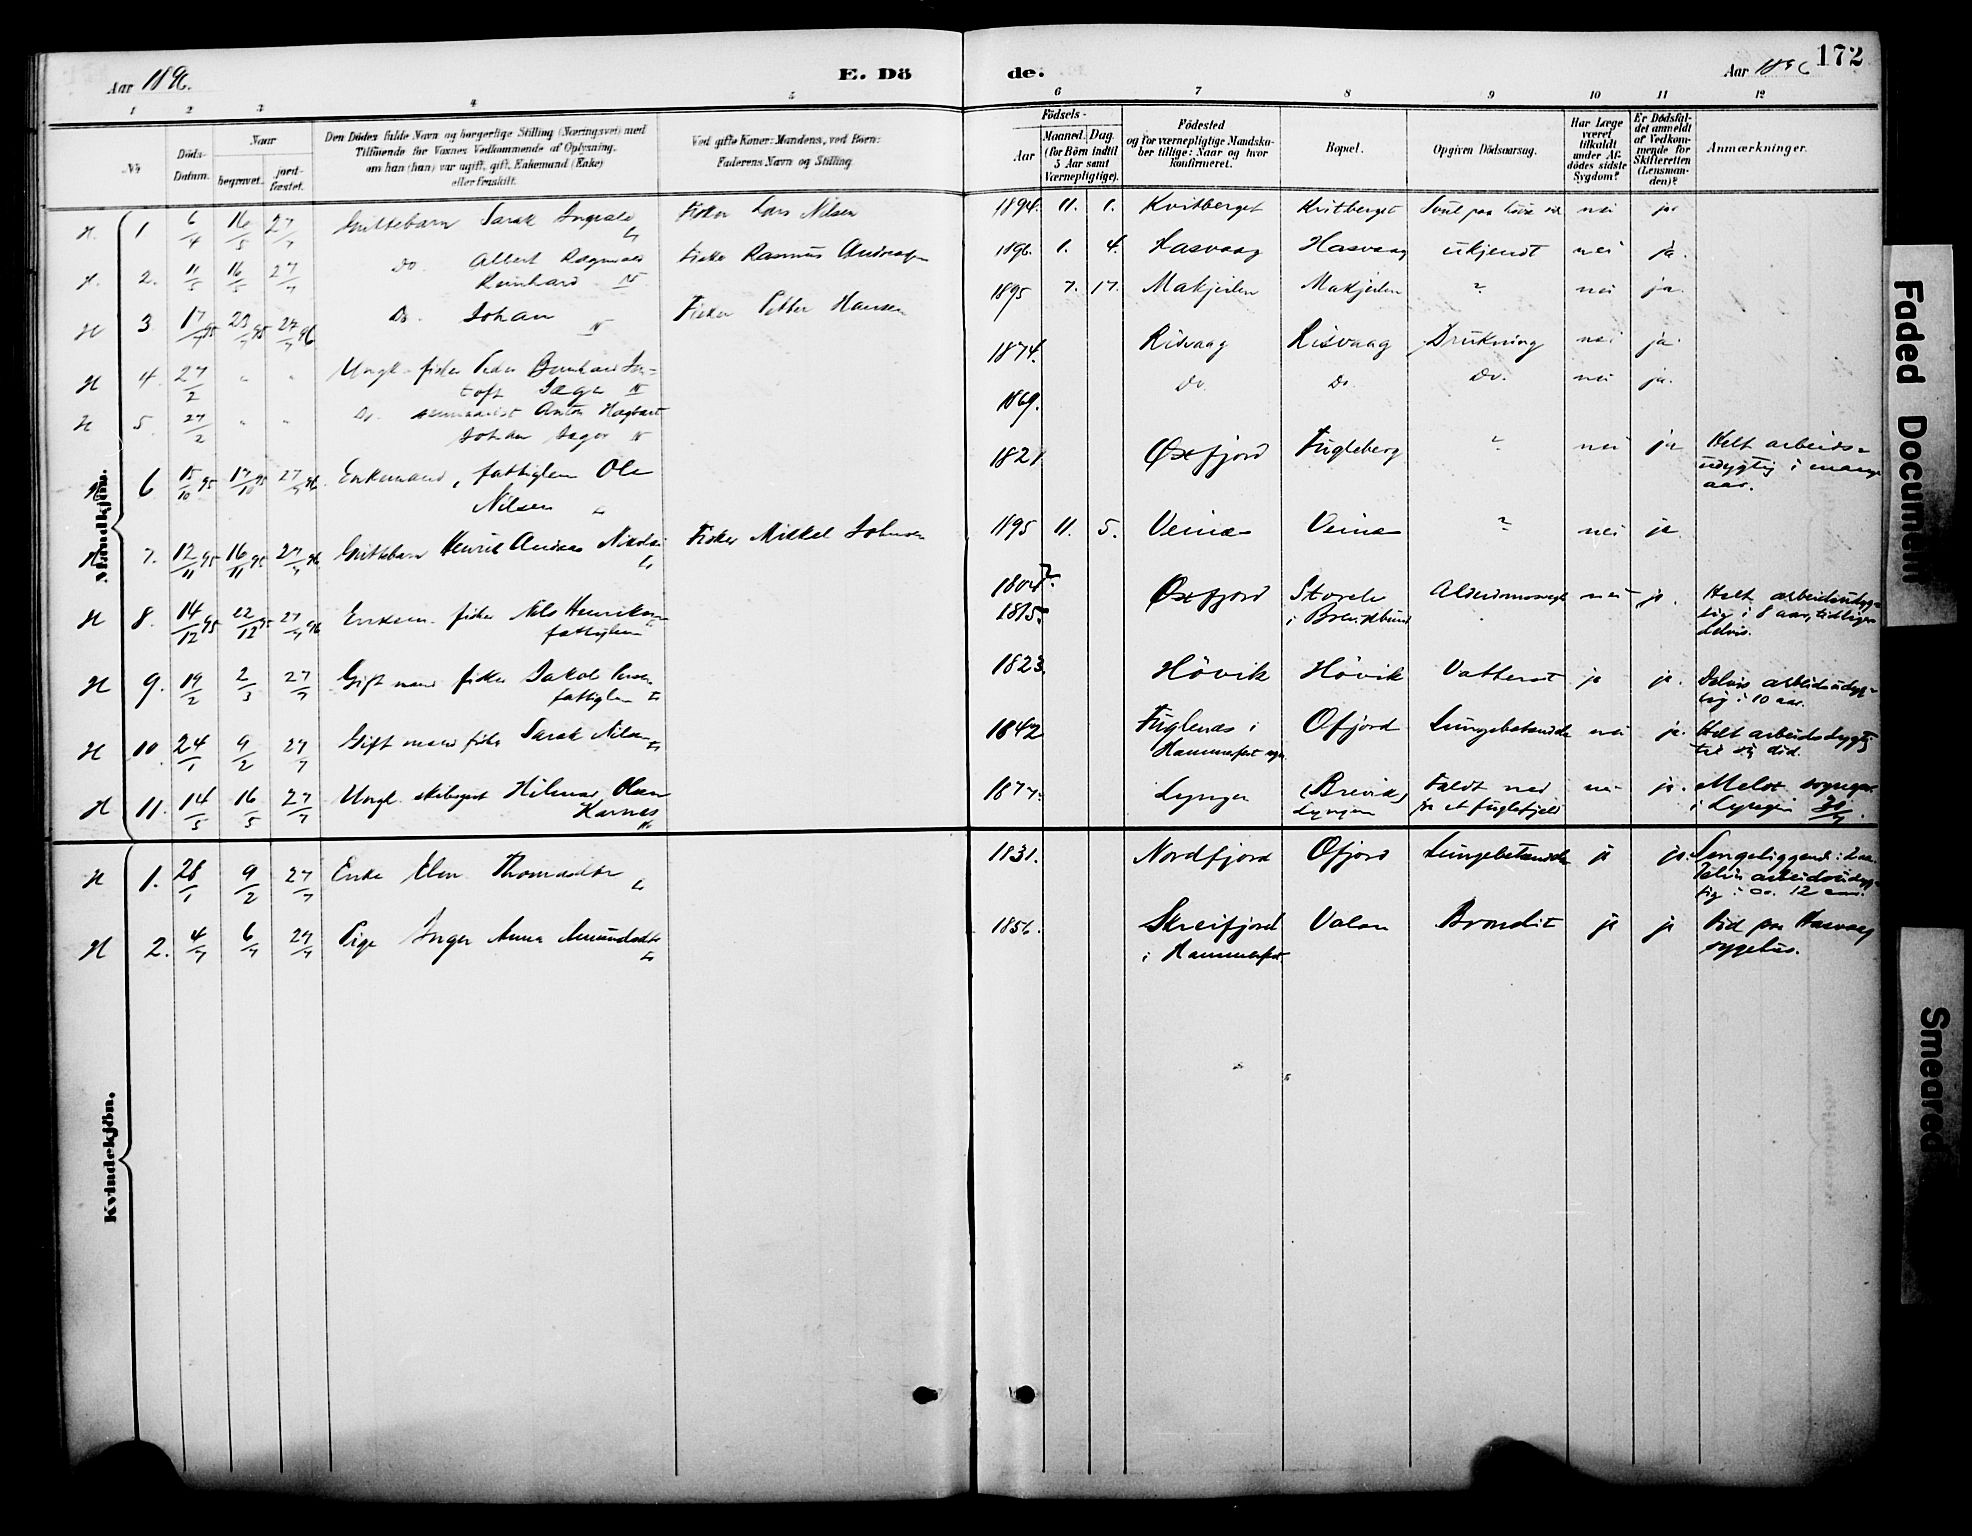 Aar 1896.
E. Dö
de.
Aar 1896
172
1 2 3 4 5
6 7 8 9 10 11 12
No
Döds-
Datum.
Naar
begravet.
jord-
fæstet.
Den Dödes fulde Navn og borgerlige Stilling (Næringsvei) med
Tilföiende for Voxnes Vedkommende af Oplysning,
om han (hun) var ugift, gift, Enkemand (Enke)
eller fraskilt.
Ved gifte Koner: Mandens, ved Börn:
Faderens Navn og Stilling
Födsels-
Aar
Maaned.
Dag.
(for Börn indtil
5 Aar samt
Værnepligtige).
Födested
og for værnepligtige Mandska-
ber tillige: Naar og hvor
konfirmeret.
Bopæl.
Opgiven Dödsaarsag.
Har Læge
været
tilkaldt
under Af-
dödes sidste
Sygdom?
Er Dödsfal-
det anmeldt
af Vedkom-
mende for
Skifteretten
(Lensman-
den)?
Anmærkninger.
Mandkjön.
H. 1 6/4 16/5 27/7 Guttebarn Sarak Fisker Lars Nilsen 1894. 11. 1. Kvitberget Kvitberget nei ja.
H. 2. 11/5 16/5 27/7 Do. Albert Ragnvald Fisker Rasmus 1896. 1. 4. Hasvaag Hasvaag ukjendt nei ja.
Reinhard N
H 3 17/7 95 23/7 95 27/7 96 Do. Johan N Fisker Petter Hansen 1895 7. 17. Makjeilen Makjeilen ? nei ja.
H 4. 27/2 " " Ungk. fisker Peder Bernhard N 1874. Risvaag Risvaag Drukning nei ja.
H 5. 27/2 " " Do. seminarist Anton Hagbart 1869. Do. Do. Do. nei ja.
Johan Jager N
H 6 15/10 95 17/10 95 27/7 96. Enkemand, fattiglem Ole 1821 Øxfjord Fugleberg ? nei ja Helt arbeids-
Nilsen udygtig i mange
aar.
H 7. 12/11 95 16/11 95 27/7 96 Guttebarn Henrik Andreas Nikolai Fisker Mikkel Johnsen 1895 11. 5. Veines Veines ? nei ja.
H 8. 14/12 95 22/12 95 27/7 96 Enkem. fisker Nils Henriksen 1815 Øxfjord nei ja. Helt arbeidsudyg-
fattiglem tig i 8 aar, tidligere
delvis.
H 9. 19/2 2/3 27/7 Gift mand fisker Jakob 1823. Hövik Hövik Vattersot ja ja. Delvis arbeidsudyg-
fattiglem tig i 10 aar.
H 10. 24/1 9/2 27/7 Gift mand fisker Sarak Nilsen 1842 Fuglenæs i Ofjord Lungebetændelse nei ja. Helt arbeidsdygtig
Hammerfest sogn til sin död.
H 11. 14/5 16/5 27/7 Ungk. Hilmar Olsen 1877. Lyngen (Breivik) Faldt ned nei ja. Meldt sognepr.
Karnes Lyngen fra et fuglefjeld i Lyngen
Kvindekjön.
H 1. 28/1 9/2 27/7 Enke Elen Thomasdtr 1831. Nordfjord Ofjord Lungebetændelse ja ja. Sengeliggende
Delvis arbeidsudyg-
tig i ca. 12 aar.
H 2. 4/7 6/7 27/7 Pige Inger Anna Amundsdtr 1856. Skreifjord Valan Brondit ja ja Död paa Hasvaag
i Hammerfest sygehus.
Faded Document
Smeared